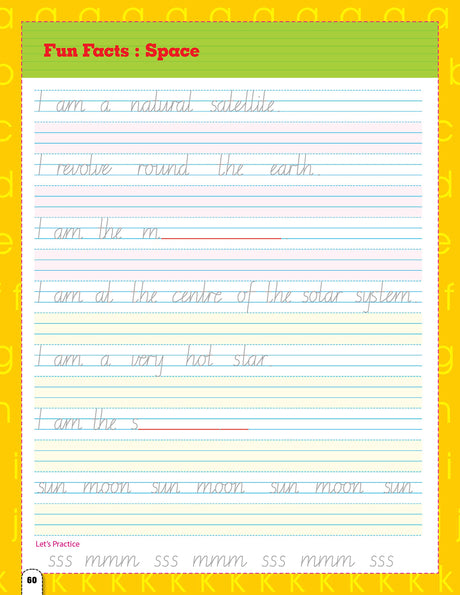 Fun Facts : Space
I am a natural satellite.
I revolve round the earth.
I am the m
I am at the centre of the solar system.
I am a very hot star.
I am the s
sun moon sun moon sun moon sun
Let's Practice
sss mmm sss mmm sss mmm sss
60